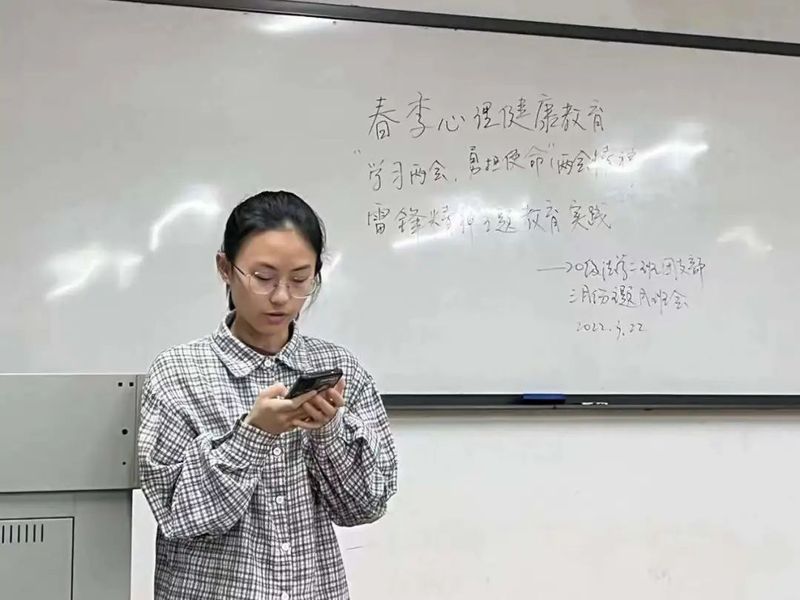 春季心理健康教育
“学习两会,勇担使命”两会精神
雷锋精神主题教育实践
——20级法学二班团支部
三月份主题班会
2022.3.22